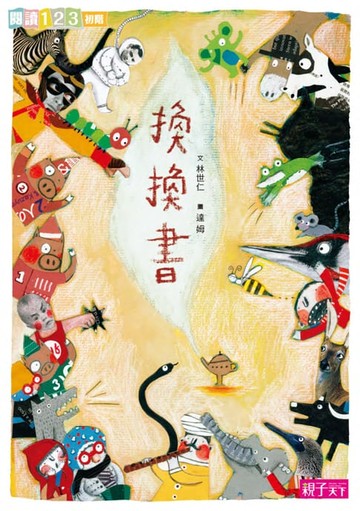 閱讀123初階
換換書
文 林世仁
圖 達姆
親子天下